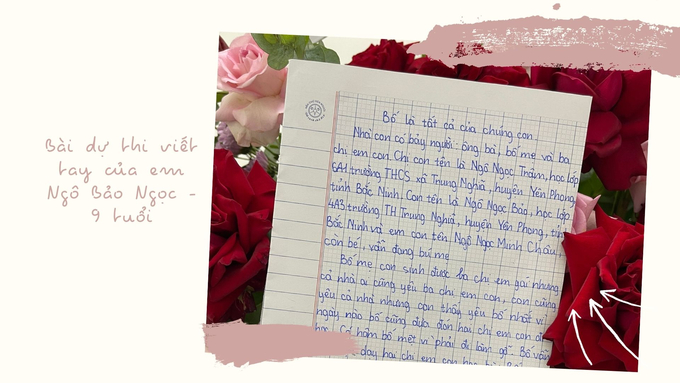 Bài dự thi viết
tay của em
Ngô Bảo Ngọc -
9 tuổi
Bố là tất cả của chúng con
Nhà con có bảy người: ông, bà, bố mẹ và ba
chị em con. Chị con tên là Ngô Ngọc Trâm, học lớp
6A1 trường THCS xã Trung Nghĩa, huyện Yên Phong
tỉnh Bắc Ninh. Con tên là Ngô Ngọc Bảo, học lớp
4A3 trường TH Trung Nghĩa, huyện Yên Phong, tỉnh
Bắc Ninh và em con tên Ngô Ngọc Minh Châu
còn bé, vẫn đang bú mẹ.
Bố mẹ con sinh được ba chị em gái nhưng
cả nhà ai cũng yêu ba chị em con, con cũng
yêu cả nhà nhưng con thấy yêu bố nhất vì
ngày nào bố cũng đưa đón hai chị em con đi
học. Có hôm bố mệt vì phải đi làm gỗ. Bố vẫn
dạy hai chị em con học